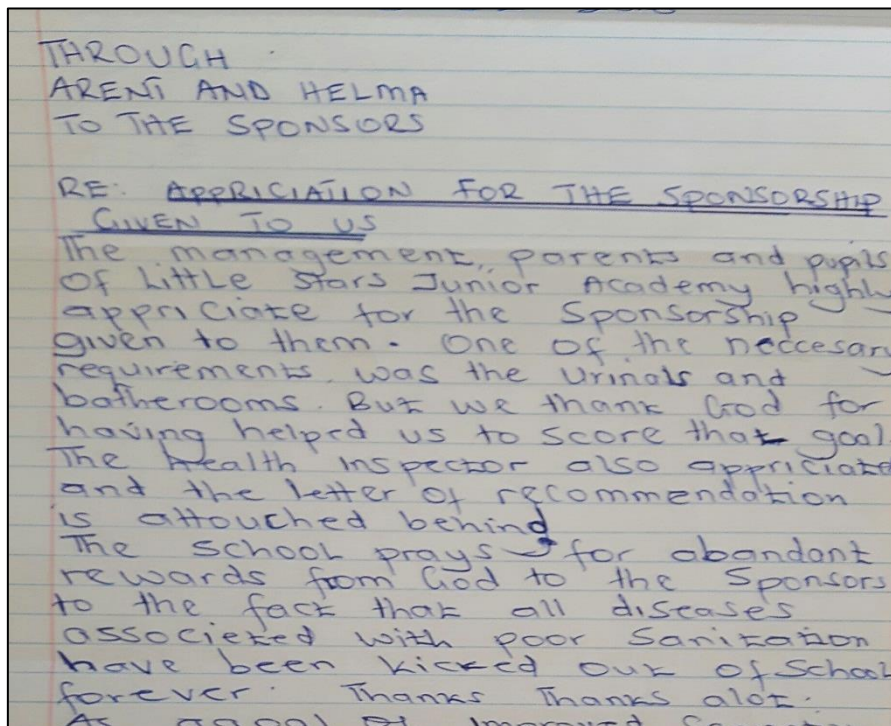 THROUGH
ARENT AND HELMA
TO THE SPONSORS
RE: APPRICIATION FOR THE SPONSORSHIP
GIVEN TO US
The management, parents and pupils
of Little Stars Junior Academy highly
appriciate for the Sponsorship
given to them. One of the neccesary
requirements was the urinals and
batherooms. But we thank God for
having helped us to score that goal
The health inspector also appriciated
and the letter of recommendation
is attouched behind
The school prays for abandant
rewards from God to the Sponsors
to the fact that all diseases
associeted with poor sanitation
have been kicked out of School
forever. Thanks Thanks alot.
As improved